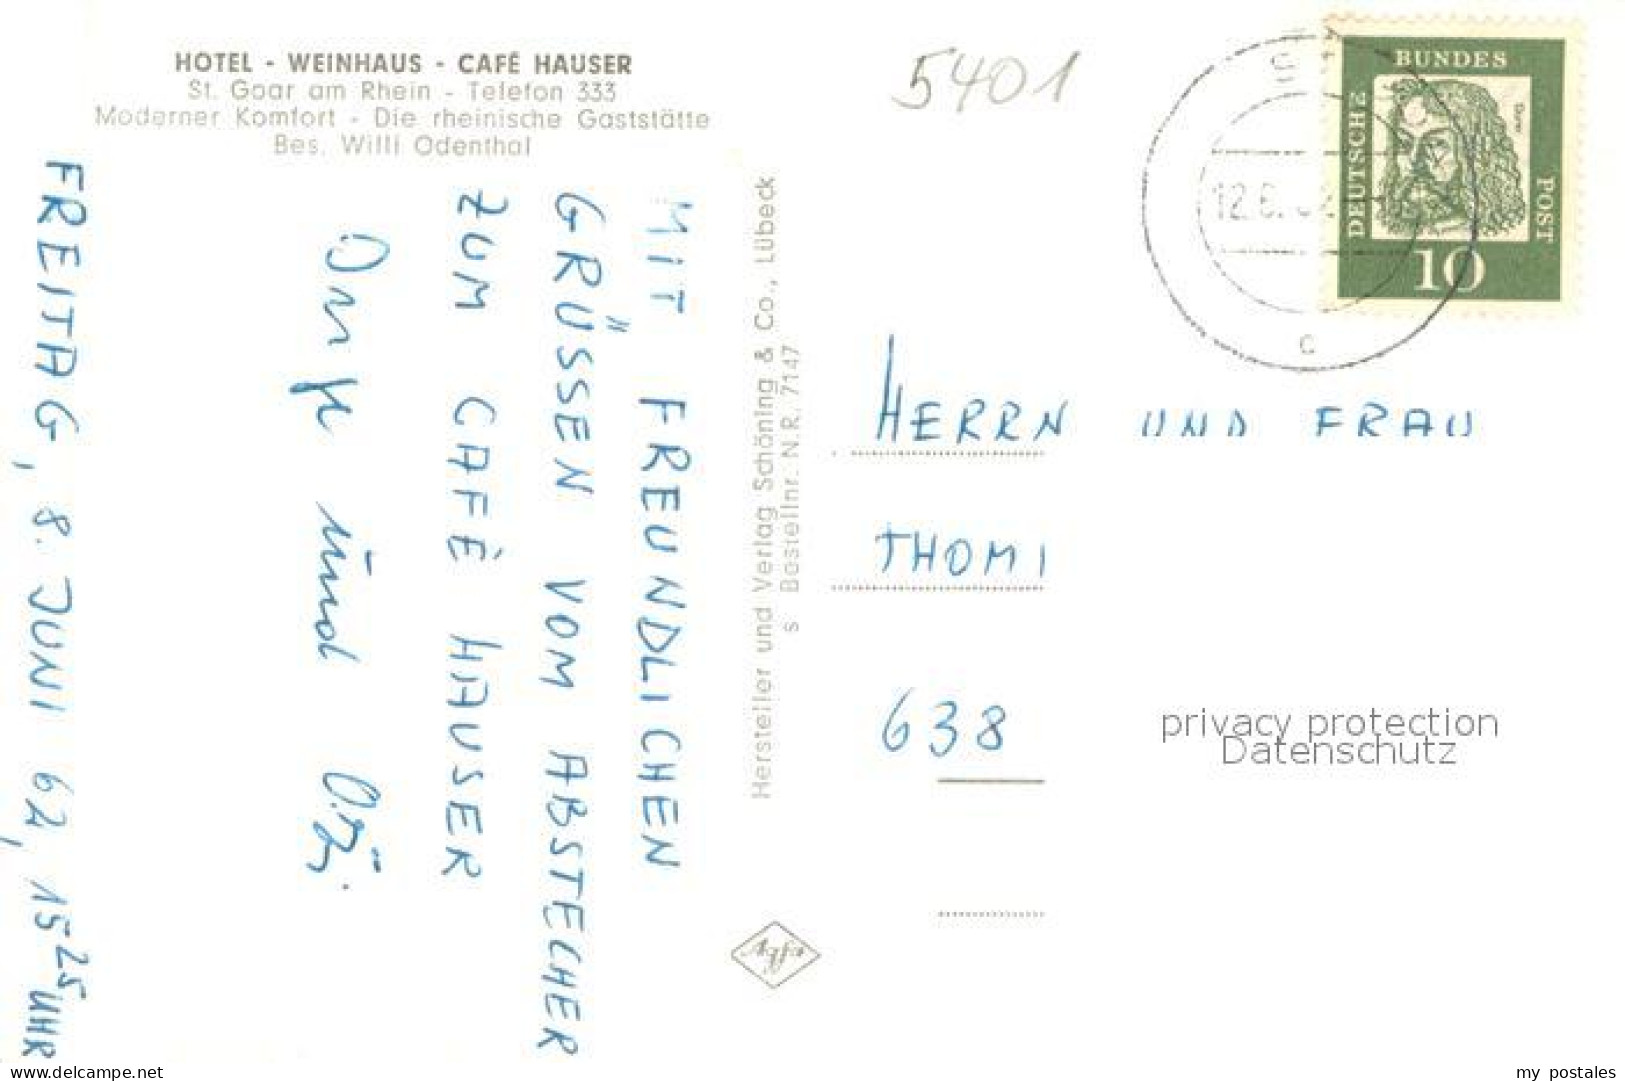 HOTEL - WEINHAUS - CAFÉ HAUSER
St. Goar am Rhein - Telefon 333
Moderner Komfort - Die rheinische Gaststätte
Bes. Willi Odenthal
MIT FREUNDLICHEN
GRÜSSEN VOM ABSTECHER
ZUM CAFÉ HAUSER
und
FREITAG, 8. JUNI 62, 15 25 UHR
Hersteller und Verlag Schöning & Co., Lübeck
s Bestellnr. N.R. 7147
Agfa
5401
12.6.
c
DEUTSCHE
BUNDES
POST
10
HERRN UND FRAU
THOMI
638
privacy protection
Datenschutz
www.delcampe.net
my_postales